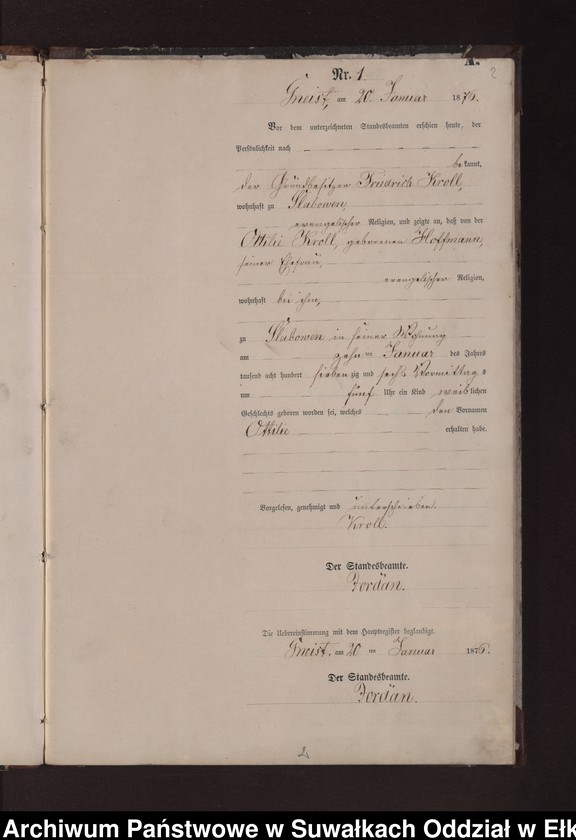 2
Nr. 1.
Gneist, am 20. Januar 1876.
Vor dem unterzeichneten Standesbeamten erschien heute, der
Persönlichkeit nach
bekannt,
der Grundbesitzer Friedrich Kroll,
wohnhaft zu Slabowen,
evangelischer Religion, und zeigte an, daß von der
Ottilie Kroll, geborenen Hoffmann,
seiner Ehefrau,
evangelischer Religion,
wohnhaft bei ihm,
zu Slabowen in seiner Wohnung
am zehnten Januar des Jahres
tausend acht hundert siebenzig und sechs Vormittags
um fünf Uhr ein Kind weiblichen
Geschlechts geboren worden sei, welches den Vornamen
Ottilie erhalten habe.
Vorgelesen, genehmigt und unterschrieben.
Kroll.
Der Standesbeamte.
Jordan.
Die Uebereinstimmung mit dem Hauptregister beglaubigt.
Gneist, am 20 ten Januar 1876.
Der Standesbeamte.
Jordan.
Archiwum Państwowe w Suwałkach Oddział w Ełk